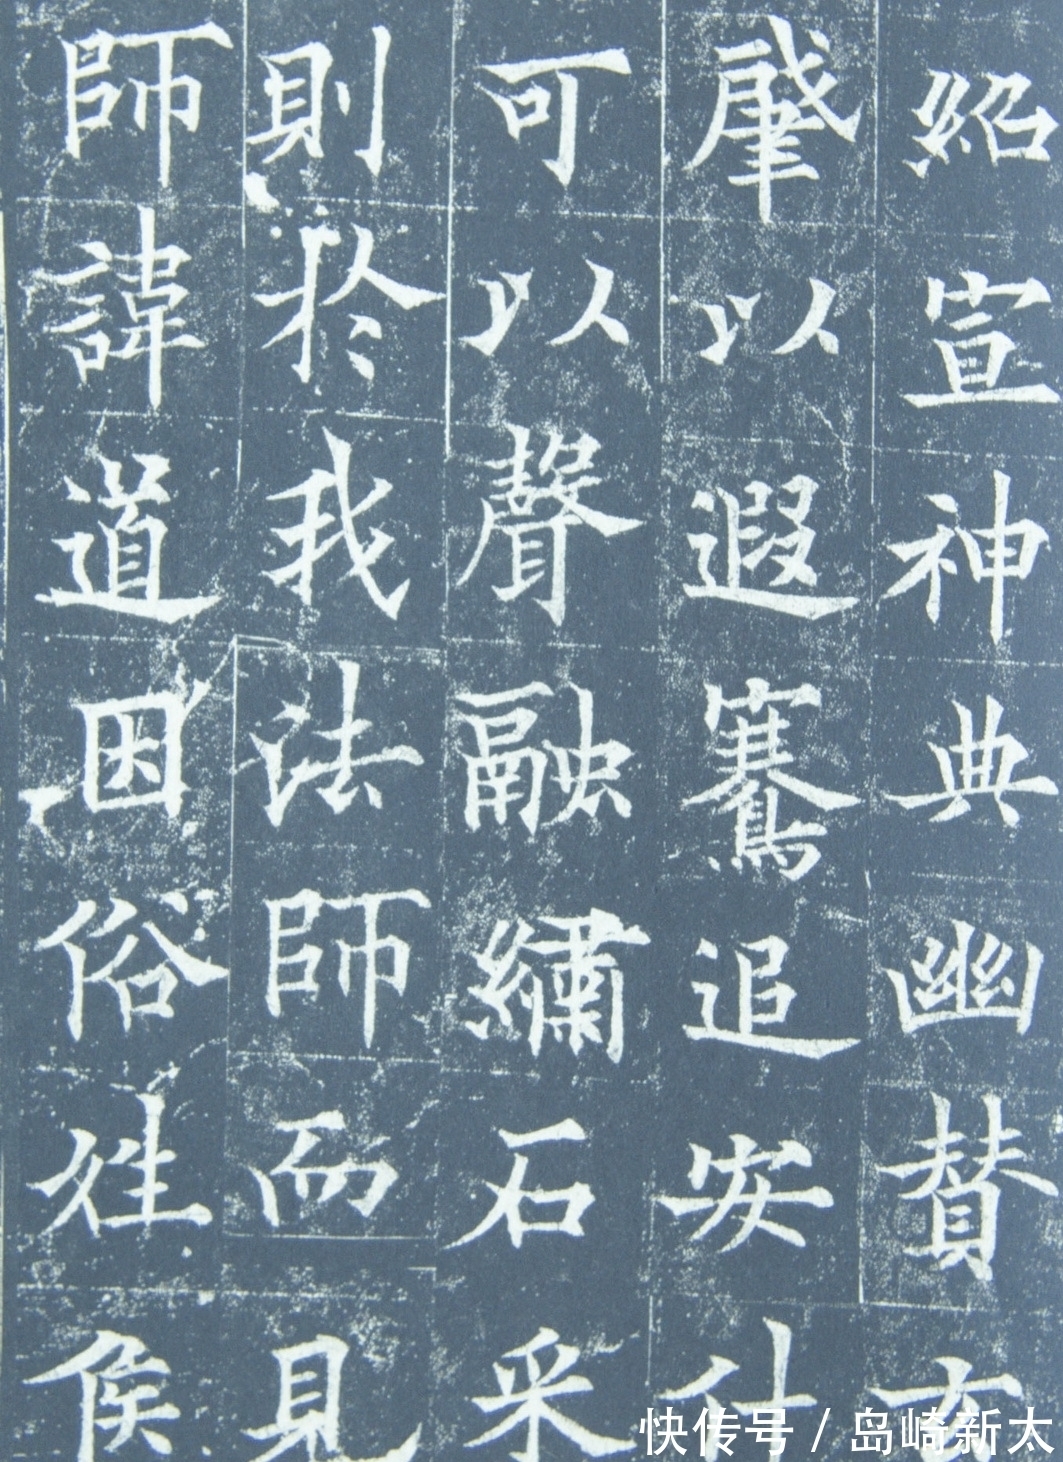 紹宣神典幽賛玄
肇以遐騫追安什
可以聲融繡石采
則於我法師而見
師諱道因俗姓侯
快传号/岛崎新太